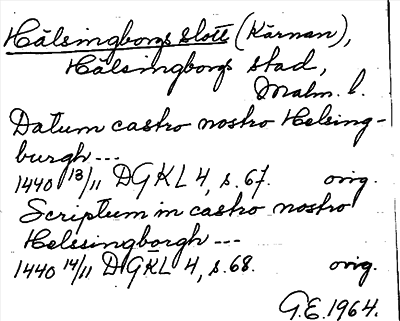 Hälsingborgs slott (Kärnan),
Hälsingborgs stad,
Malm. l.
Datum castro nostro Helsing-
burgh---
1440 13/11 DGKL 4, s. 67. orig.
Scriptum in castro nostro
Helssingborgh ---
1440 14/11 DGKL 4, s. 68. orig.
G.E. 1964.